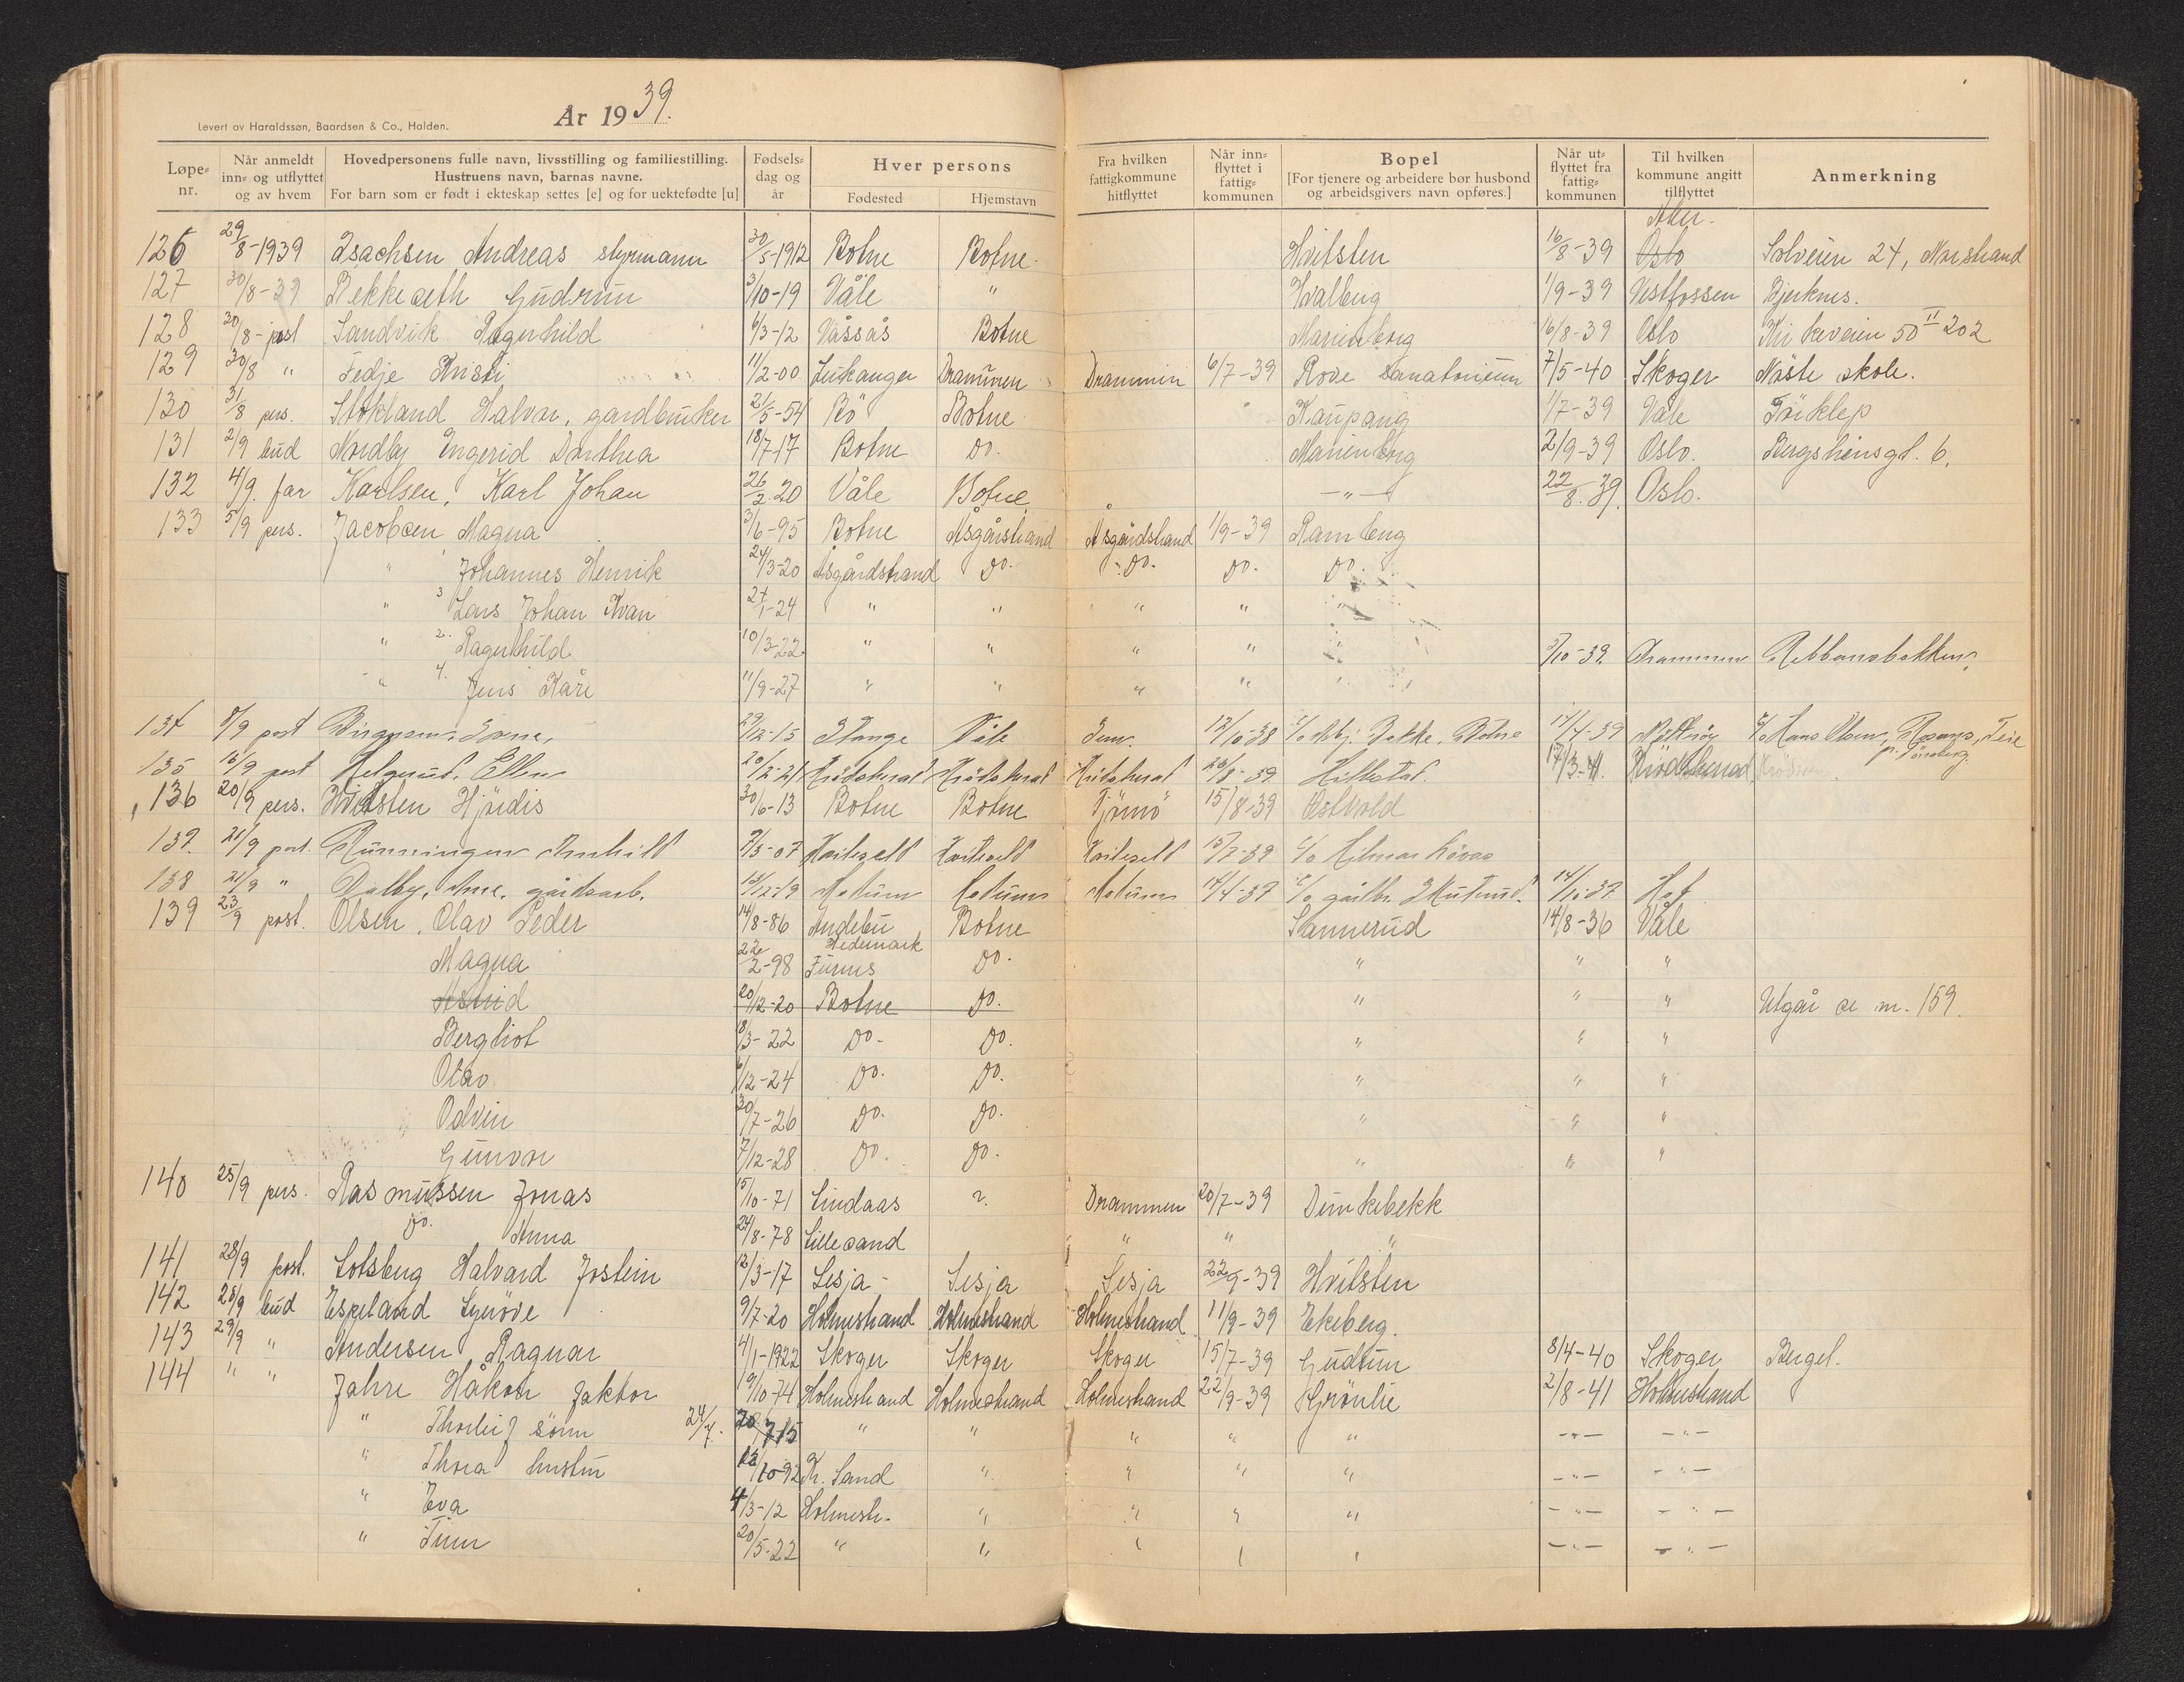 Levert av Haraldssøn, Baardsen & Co., Halden.
År 1939.
Løpenr. Når anmeldt inn- og utflyttet og av hvem Hovedpersonens fulle navn, livsstilling og familiestilling. Hustruens navn, barnas navne. For barn som er født i ekteskap settes [e] og for uektefødte [u] Fødselsdag og år Hver persons Fødested Hjemstavn Fra hvilken fattigkommune hitflyttet Når innflyttet i fattigkommunen Bopel [For tjenere og arbeidere bør husbond og arbeidsgivers navn opføres.] Når utflyttet fra fattigkommunen Til hvilken kommune angitt tilflyttet Anmerkning
126 29/8-1939 Isachsen Andreas styrmann 30/5-1912 Botne Botne. Hvitsten 16/8-39 Oslo Aker. Solveien 24, Norstrand
127 30/8-39 Gudrun 3/10-19 Våle " Hvalberg 1/9-39 Vestfossen Bjerknes.
128 30/8-post Sandvik Ragnhild 6/3-12 Våssås Botne Marienborg 16/8-39 Oslo Kirkeveien 50 II 202
129 30/8 " Tedje Kristi 11/2-00 Leikanger Drammen Drammen 6/7-39 Rove sanatorium 7/5-40 Skoger Nøste skole.
130 31/8 pers. Stokland Halvor, gardbruker 21/5-54 Bö Botne Kaupang 1/7-39 Våle
131 2/9 bud Nordby Ingerid Dorthea 18/7-17 Botne Do. Marienborg 2/9-39 Oslo. 6.
132 4/9. far Karlsen, Karl Johan 26/2-20 Våle Botne - " - 22/8-39. Oslo.
133 5/9 pers. Jacobsen Magna 3/6-95 Botne Åsgårstrand Åsgårdstrand 1/9-39 Ramberg
" Johannes Henrik 24/3-20 Åsgårdstrand Do. Do. Do. Do.
" 3 Lars Johan Ivan 27/1-24 " " " " "
" 2. Ragnhild 10/3-22 " " " " " 3/10-39. Drammen
" 4. Jens Kåre 11/9-27 " " " " "
134 8/9 post 29/12-15 Stange Våle 12/10-38 Botne 17/4-39 Nøtterøy c/o Hans Olsen, Teie p. Tønsberg.
135 16/9 post Helgerud, Ellen 20/2-21 Krödsherad Krödsherad Krödsherad 20/8-39. Hillestad. 17/3-41. Krödsherad
136 20/9 pers. Hvitsten Hjördis 30/6-13 Botne Botne Tjömö 15/8-39 Østvold
137. 21/9 post. 7/5-07 Kviteseid Kviteseid Kviteseid 15/7-39 c/o Hilmar
138 21/9 " Dalby, Arne, gårdsarb. 15/12-19 Modum Modum Modum 14/4-37 c/o gårdbr. 14/10-37 Hof
139 23/9 post. Olsen, Olav Peder 14/8-86 Andebu Botne Sannerud 14/8-36 Våle
Magna 22/2-98 Furnes Hedemark Do. " " "
Astrid 20/12-20 Botne Do. " " " Utgår se nr. 159.
Bergliot 18/3-22 Do. Do. " " "
Olav 6/12-24 Do. Do. " " "
Odvin 20/7-26 Do. Do. " " "
Gunvor 7/12-28 Do. Do. " " "
140 25/9 pers. Rasmussen Jonas 15/10-71 Lindaas ?. Drammen 20/7-39 Dunkebekk
Do. Anna 24/8-78 Lillesand " " "
141 28/9 post. Lotsberg Halvard Jostein 12/3-17 Lesja - Lesja Lesja 22/9-39 Hvitsten
142 28/9 bud Espeland Synöve 9/7-20 Holmestrand Holmestrand Holmestrand 11/9-39 Ekeberg.
143 29/9 " Andersen Ragnar 4/1-1922 Skoger Skoger Skoger 15/7-39 Gudsrun 8/4-40 Skoger Berget.
144 " " Jahre Håkon faktor 19/10-74 Holmestrand Holmestrand Holmestrand 22/9-39 Grönli 2/8-41 Holmestrand
" Thorleif sönn 24/7. 20/7 15 " " " " " - " - - " -
" Thora hustru 12/10-92 Kr. Sand " " " " - " - - " -
" Eva 4/3-12 Holmestr. " " " " - " - - " -
" Finn 20/5-22 " " " " " - " - - " -